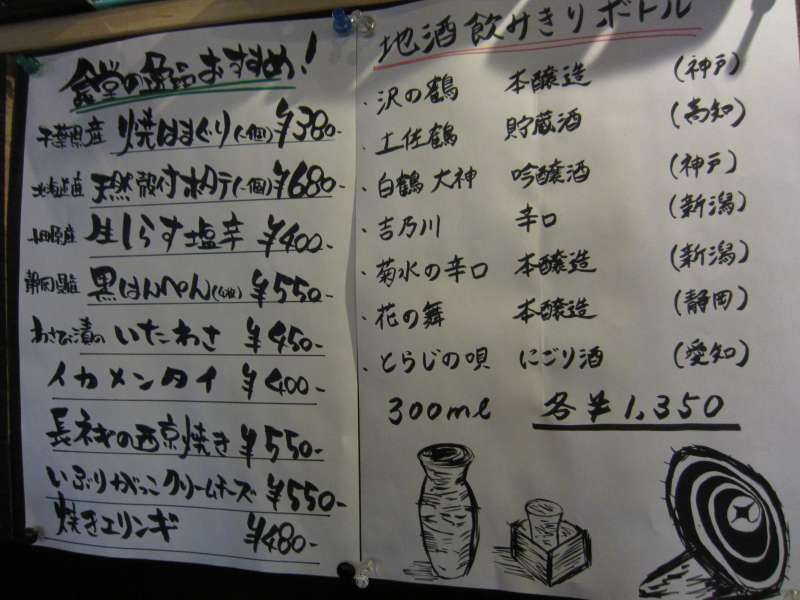 食堂の逸品おすすめ!
千葉県産 焼はまぐり(1個) ¥380-
北海道産 天然殻付ホタテ(1個) ¥680-
小田原産 生しらす塩辛 ¥400-
静岡県産 黒はんぺん(4枚) ¥550-
わさび漬の いたわさ ¥450-
イカメンタイ ¥400-
長ネギの西京焼き ¥550-
いぶりがっこクリームチーズ ¥550-
焼きエリンギ ¥480-
地酒飲みきりボトル
・沢の鶴 本醸造 (神戸)
・土佐鶴 貯蔵酒 (高知)
・白鶴 大神 吟醸酒 (神戸)
・吉乃川 辛口 (新潟)
・菊水の辛口 本醸造 (新潟)
・花の舞 本醸造 (静岡)
・とらじの唄 にごり酒 (愛知)
300ml 各¥1,350